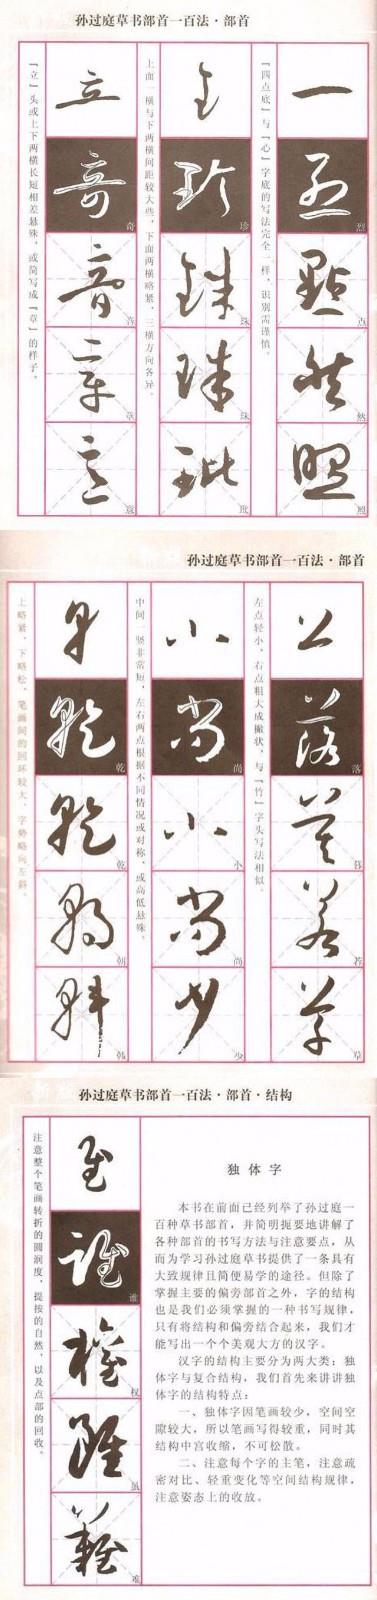 孙过庭草书部首一百法·部首
「四点底」与「心」字底的写法完全一样，识别需谨慎。
烈
点
然
照
上面一横与下两横间距较大些，下面两横略紧，三横方向各异。
珍
珠
玭
「立」头或上下两横长短相差悬殊，或简写成「草」的样子。
奇
音
章
意
孙过庭草书部首一百法·部首
左点轻小，右点粗大成撇状，与「竹」字头写法相似。
落
暮
若
草
中间一竖非常短，左右两点根据不同情况或对称，或高低悬殊。
尚
小
尚
少
上略紧，下略松，笔画间的回环较大，字势略向左斜。
乾
乾
朝
韩
孙过庭草书部首一百法·部首·结构
注意整个笔画转折的圆润度，提按的自然，以及点部的回收。
谁
权
虽
难
独体字
本书在前面已经列举了孙过庭一
百种草书部首，并简明扼要地讲解了
各种部首的书写方法与注意要点，从
而为学习孙过庭草书提供了一条具有
大致规律且简便易学的途径。但除了
掌握主要的偏旁部首之外，字的结构
也是我们必须掌握的一种书写规律，
只有将结构和偏旁结合起来，我们才
能写出一个个美观大方的汉字。
汉字的结构主要分为两大类：独
体字与复合结构，我们首先来讲讲
独体字的结构特点：
一、独体字因笔画较少，空间空
隙较大，所以笔画写得较重，同时其
结构中宫收缩，不可松散。
二、注意每个字的主笔，注意疏
密对比、轻重变化等空间结构规律，
注意姿态上的收放。